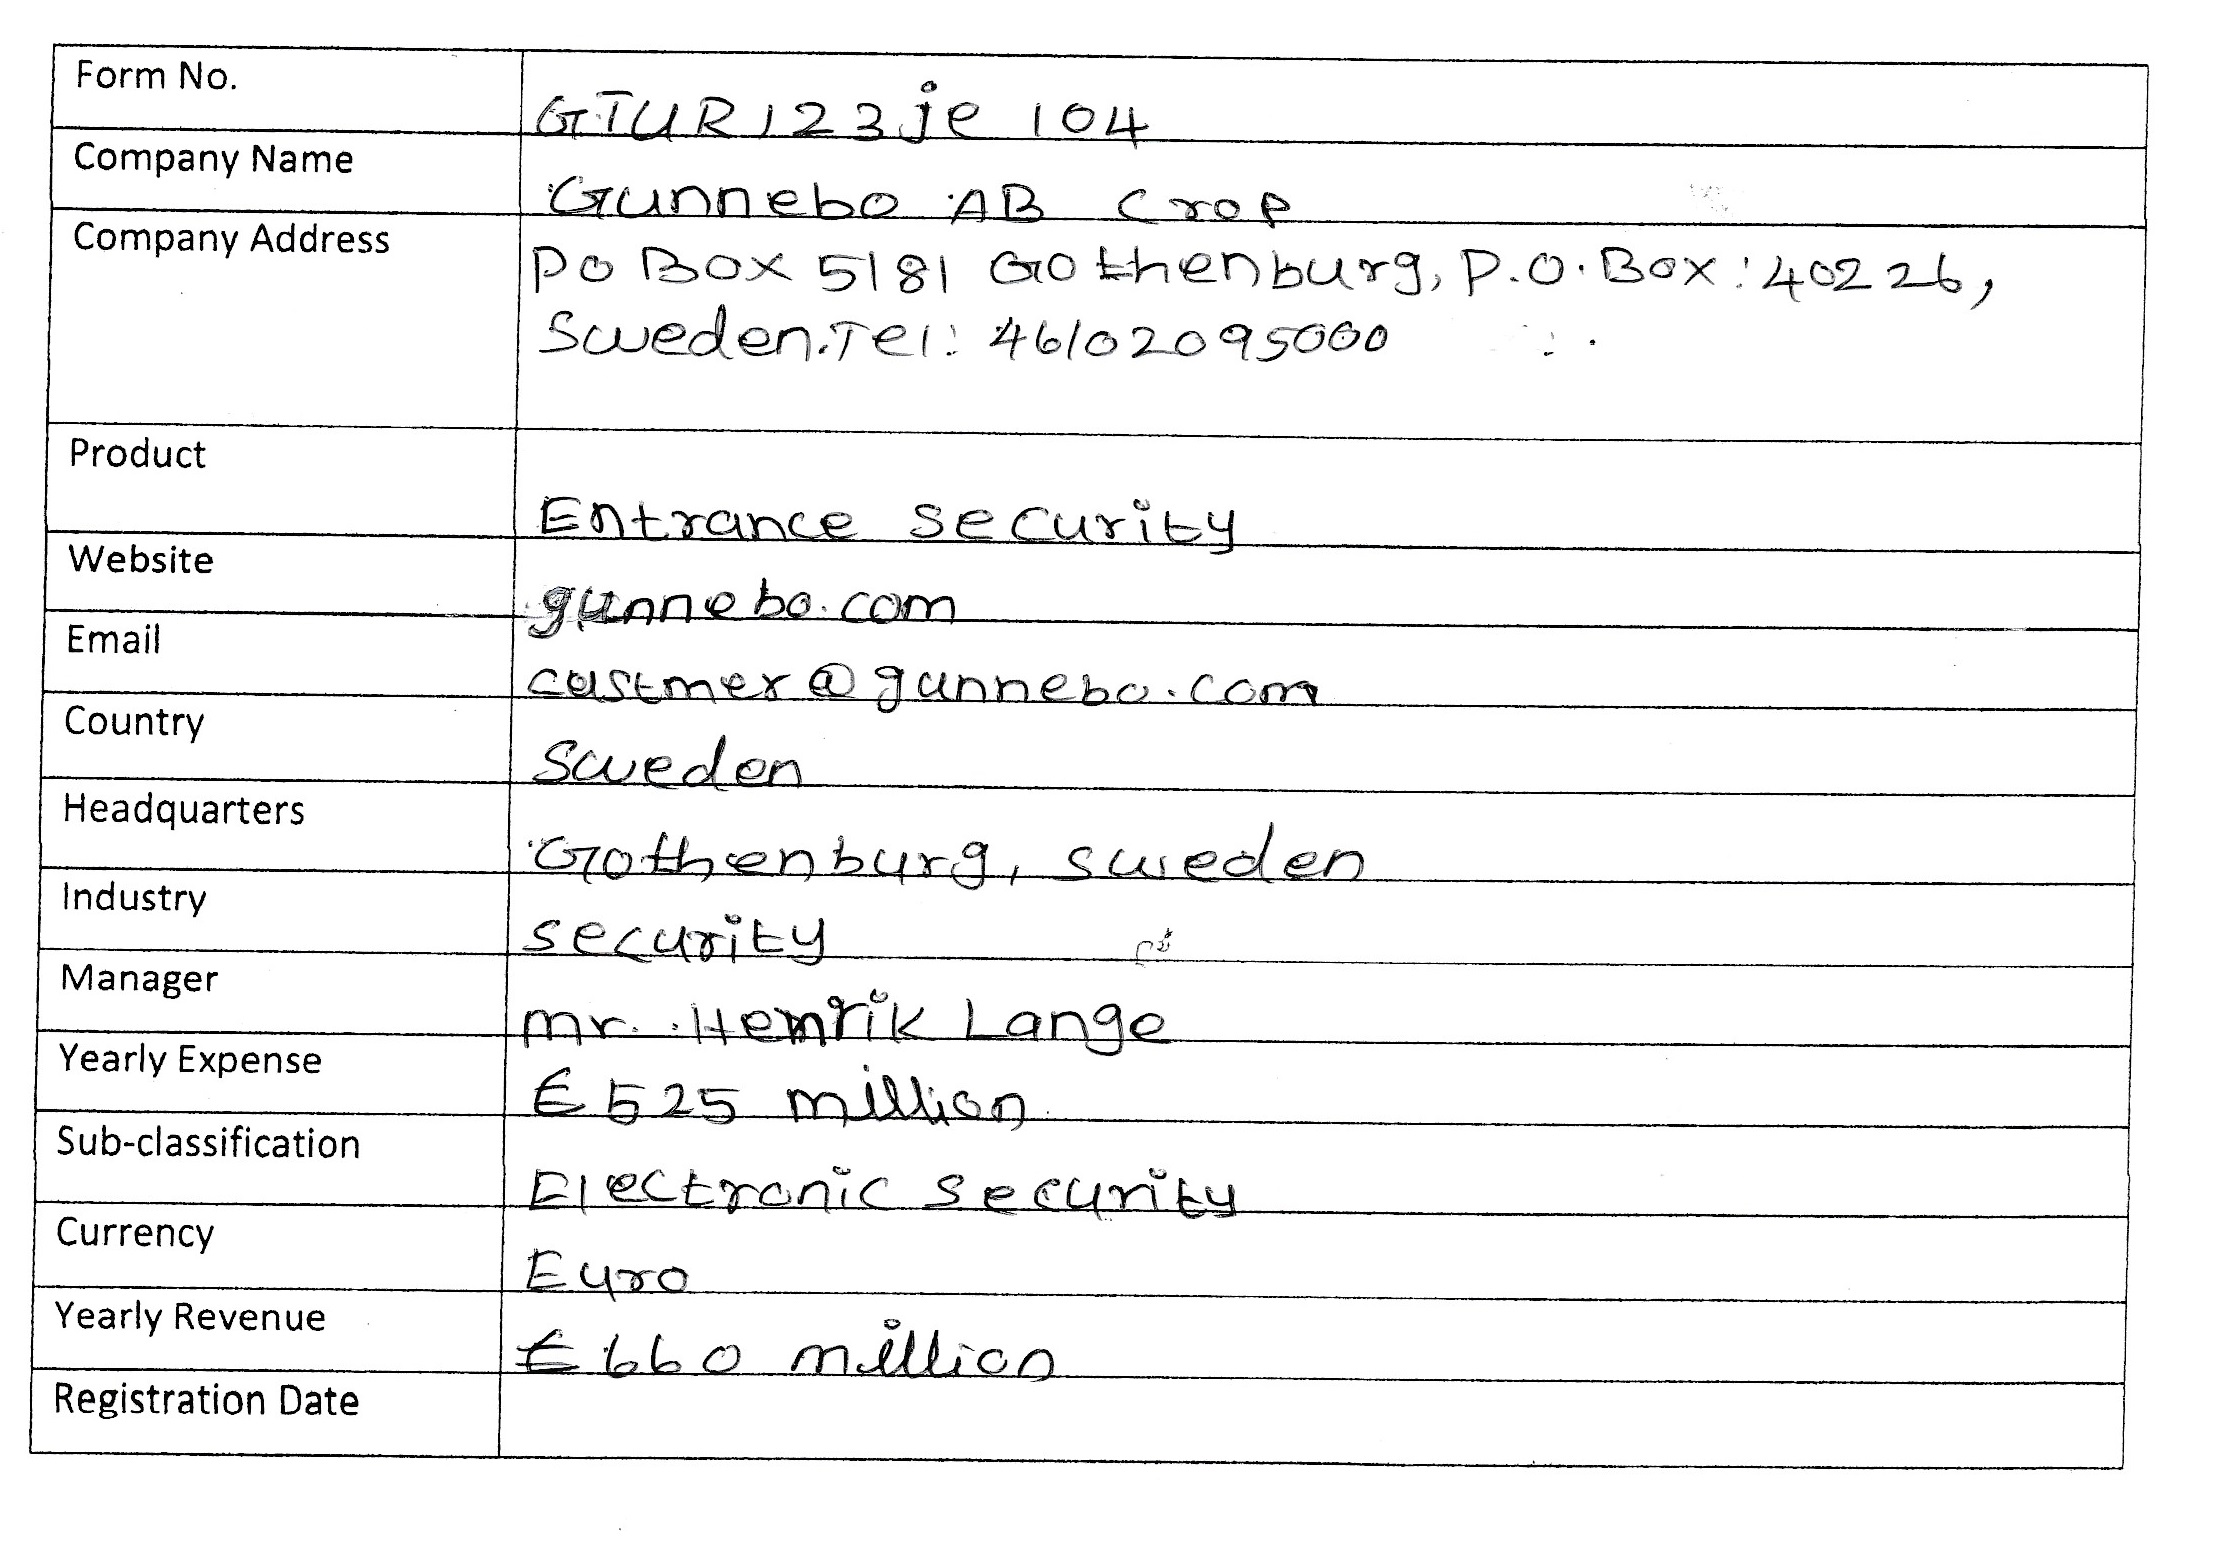 Form No.
GTUR123je 104
Company Name
Gunnebo AB Crop
Company Address
PO Box 5181 Gothenburg, P.O.Box:40226,
Sweden.Tel: 46102095000
Product
Entrance security
Website
gunnebo.com
Email
custmer@gunnebo.com
Country
Sweden
Headquarters
Gothenburg, sweden
Industry
security
Manager
mr. Henrik Lange
Yearly Expense
€ 525 million
Sub-classification
Electronic security
Currency
Euro
Yearly Revenue
€ 660 million
Registration Date